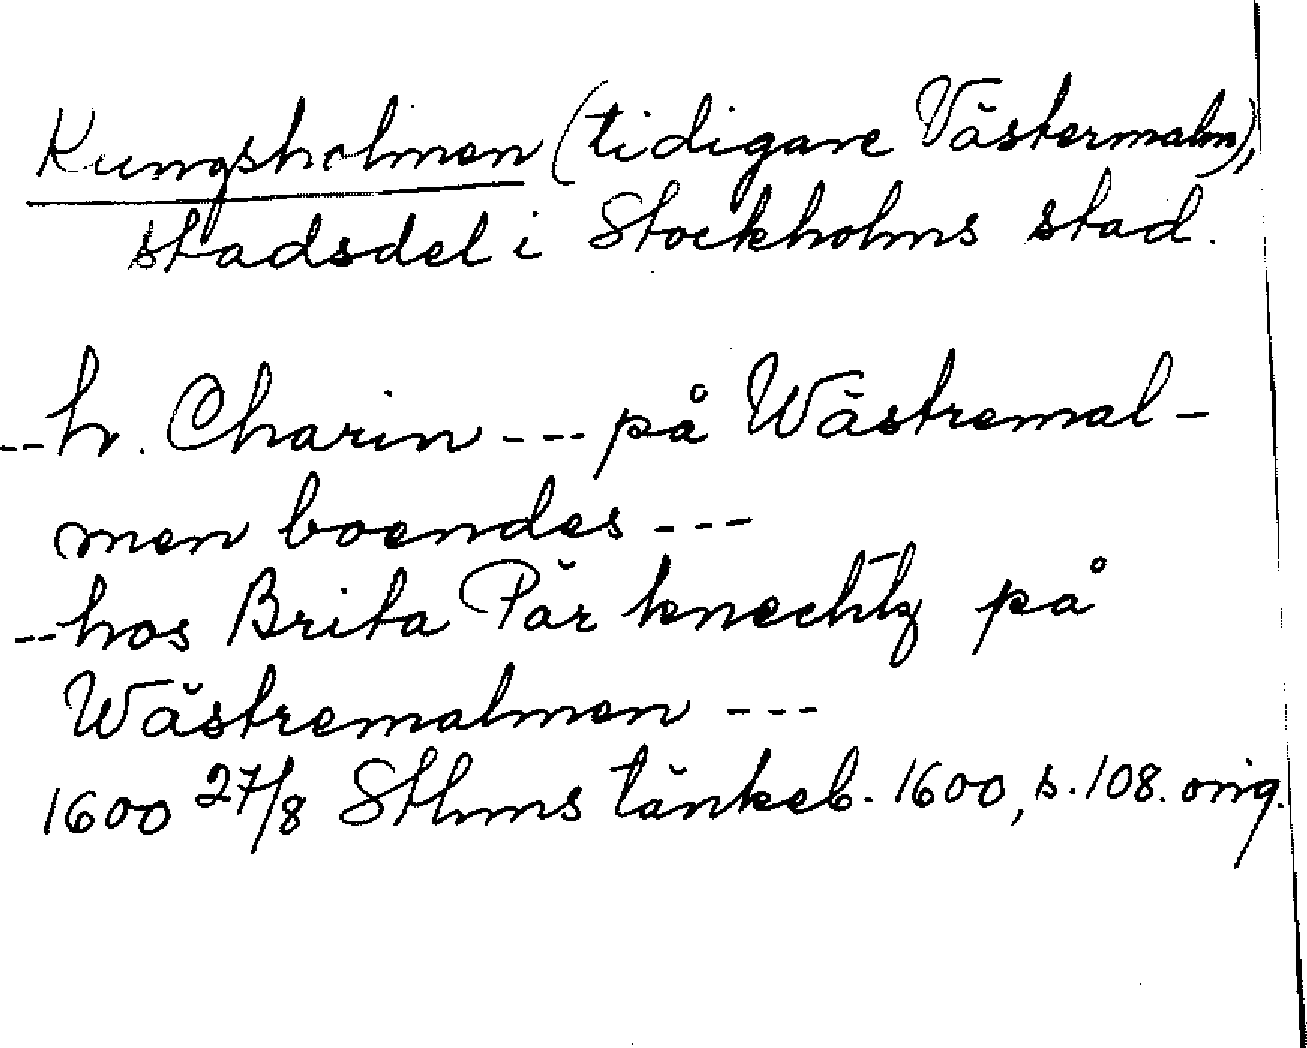 Kungsholmen (tidigare Västermalm),
stadsdel i Stockholms stad.
--h. Charin --- på Wästremal-
men boendes ---
--hos Brita Pär knechtz på
Wästremalmen ---
1600 27/8 Sthms tänkeb. 1600, s. 108. orig.